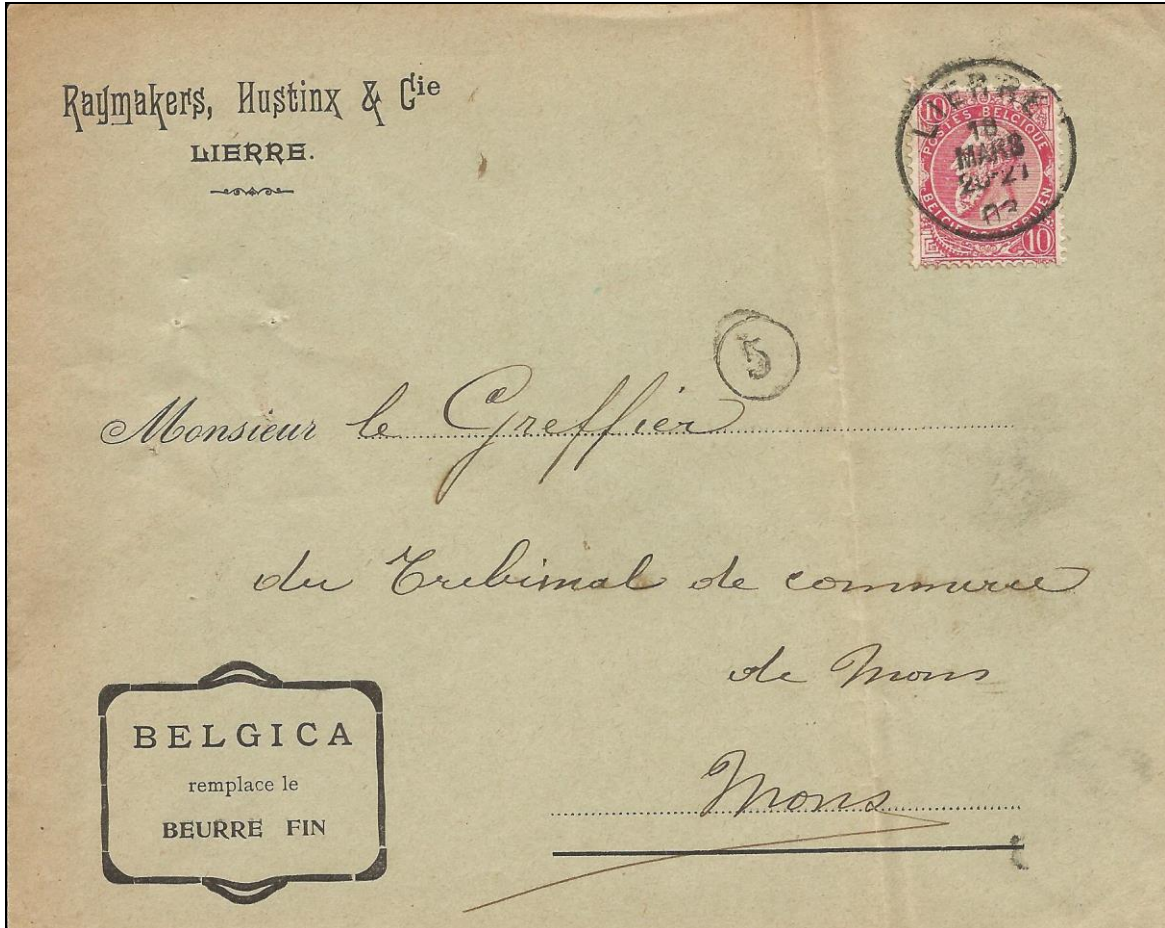 Raymakers, Hustinx & Cie
LIERRE.
10
POSTES BELGIQUE
10
LIERRE
MARS
20-21
03
5
Monsieur le Greffier
du Tribunal de commerce
de Mons
Mons
BELGICA
remplace le
BEURRE FIN